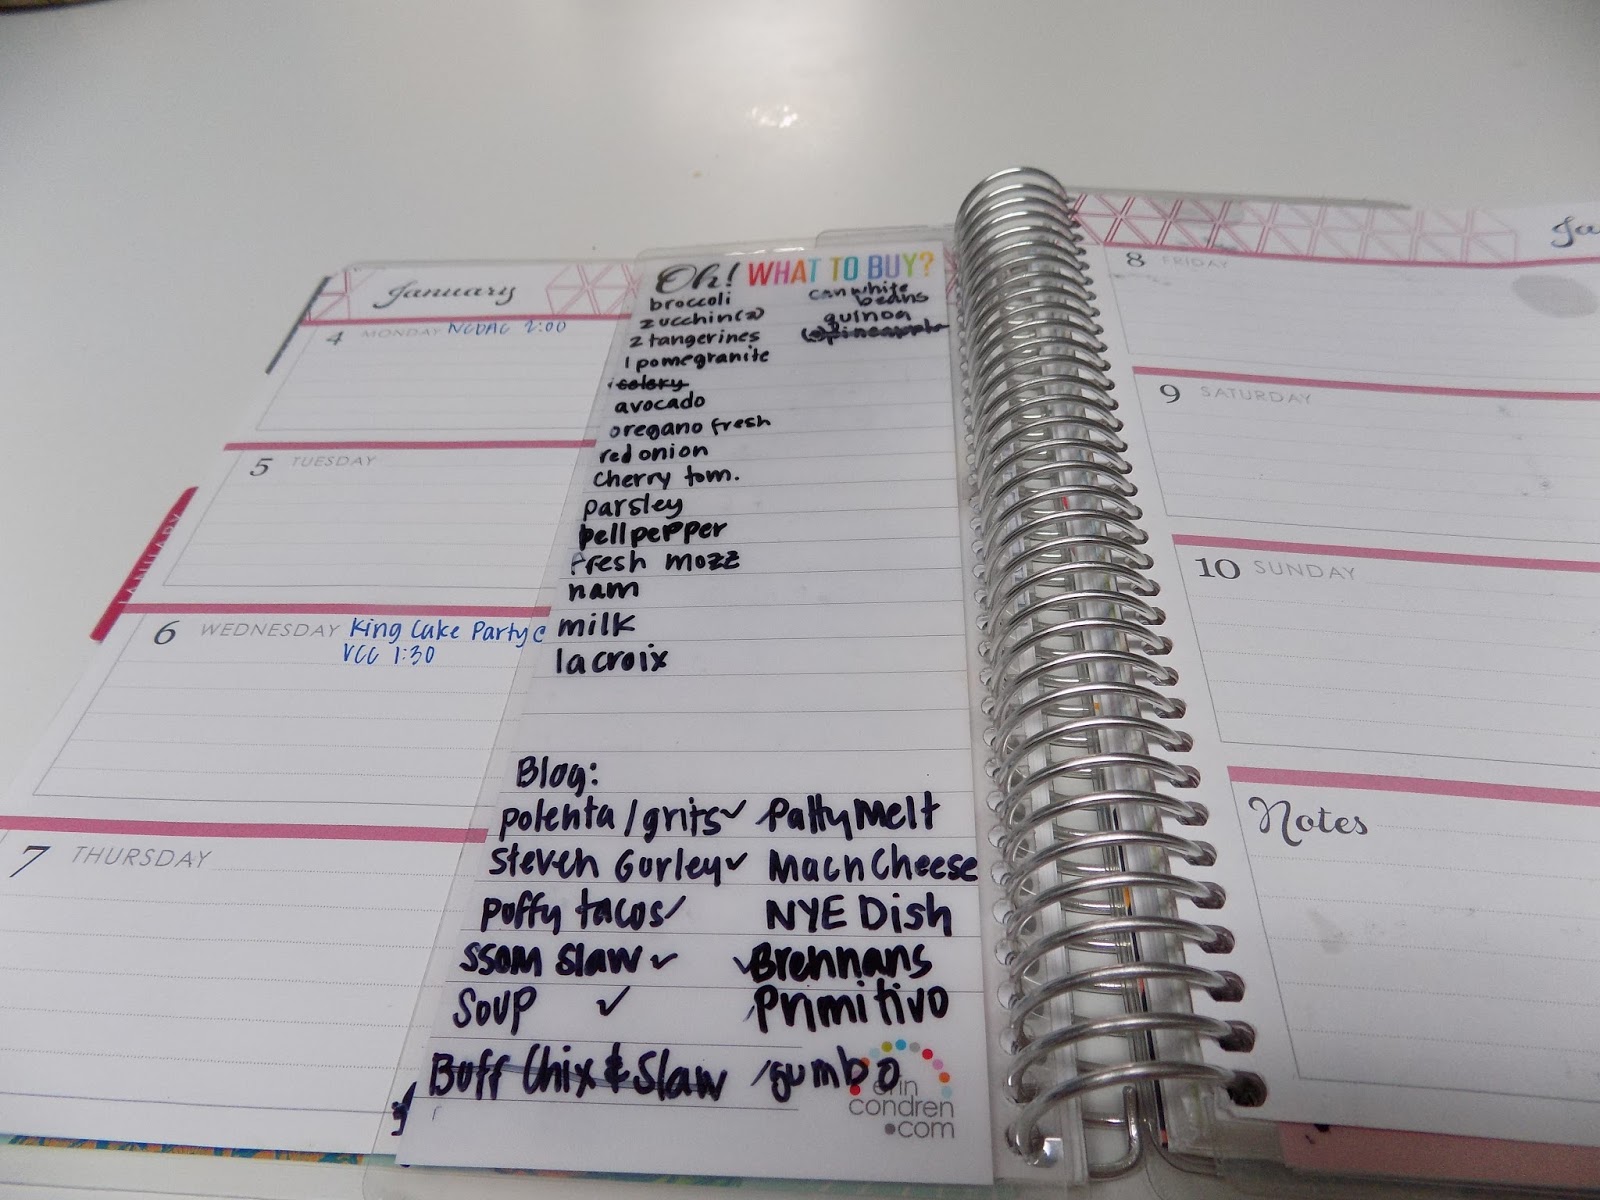 January
4 MONDAY NCDAC 2:00
5 TUESDAY
JANUARY
6 WEDNESDAY King Cake Party @
VCC 1:30
7 THURSDAY
Oh! WHAT TO BUY?
broccoli
zucchin(2)
2 tangerines
1 pomegranite
celery
avocado
oregano fresh
red onion
cherry tom.
parsley
bellpepper
fresh mozz
ham
milk
lacroix
can white
beans
quinoa
pineapple
Blog:
polenta/grits✓
Steven Gurley✓
puffy tacos✓
ssam slaw ✓
soup ✓
Buff Chix & Slaw
Patty Melt
Mac n Cheese
NYE Dish
✓Brennans
Primitivo
gumbo
erin
condren
.com
8 FRIDAY
9 SATURDAY
10 SUNDAY
Notes
Ja